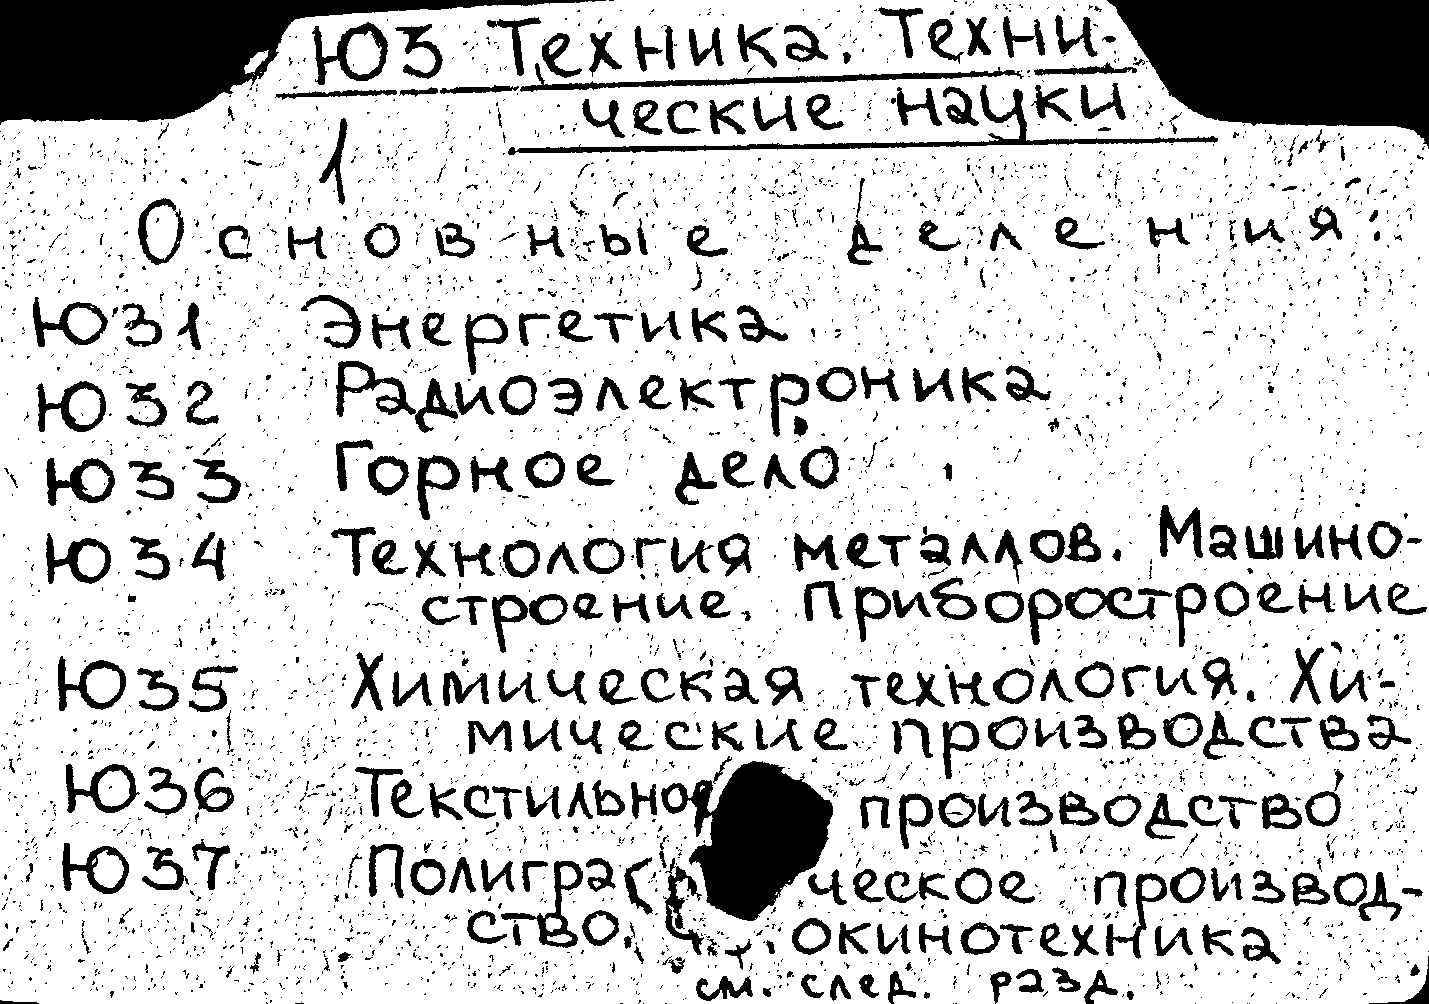 Ю3 Техника. Техни-
ческие науки
1
Основные деления:
Ю31 Энергетика
Ю32 Радиоэлектроника
Ю33 Горное дело
Ю34 Технология металлов. Машино-
строение. Приборостроение
Ю35 Химическая технология. Хи-
мические производства
Ю36 Текстильное производство
Ю37 производ-
ство.
см. след. разд.